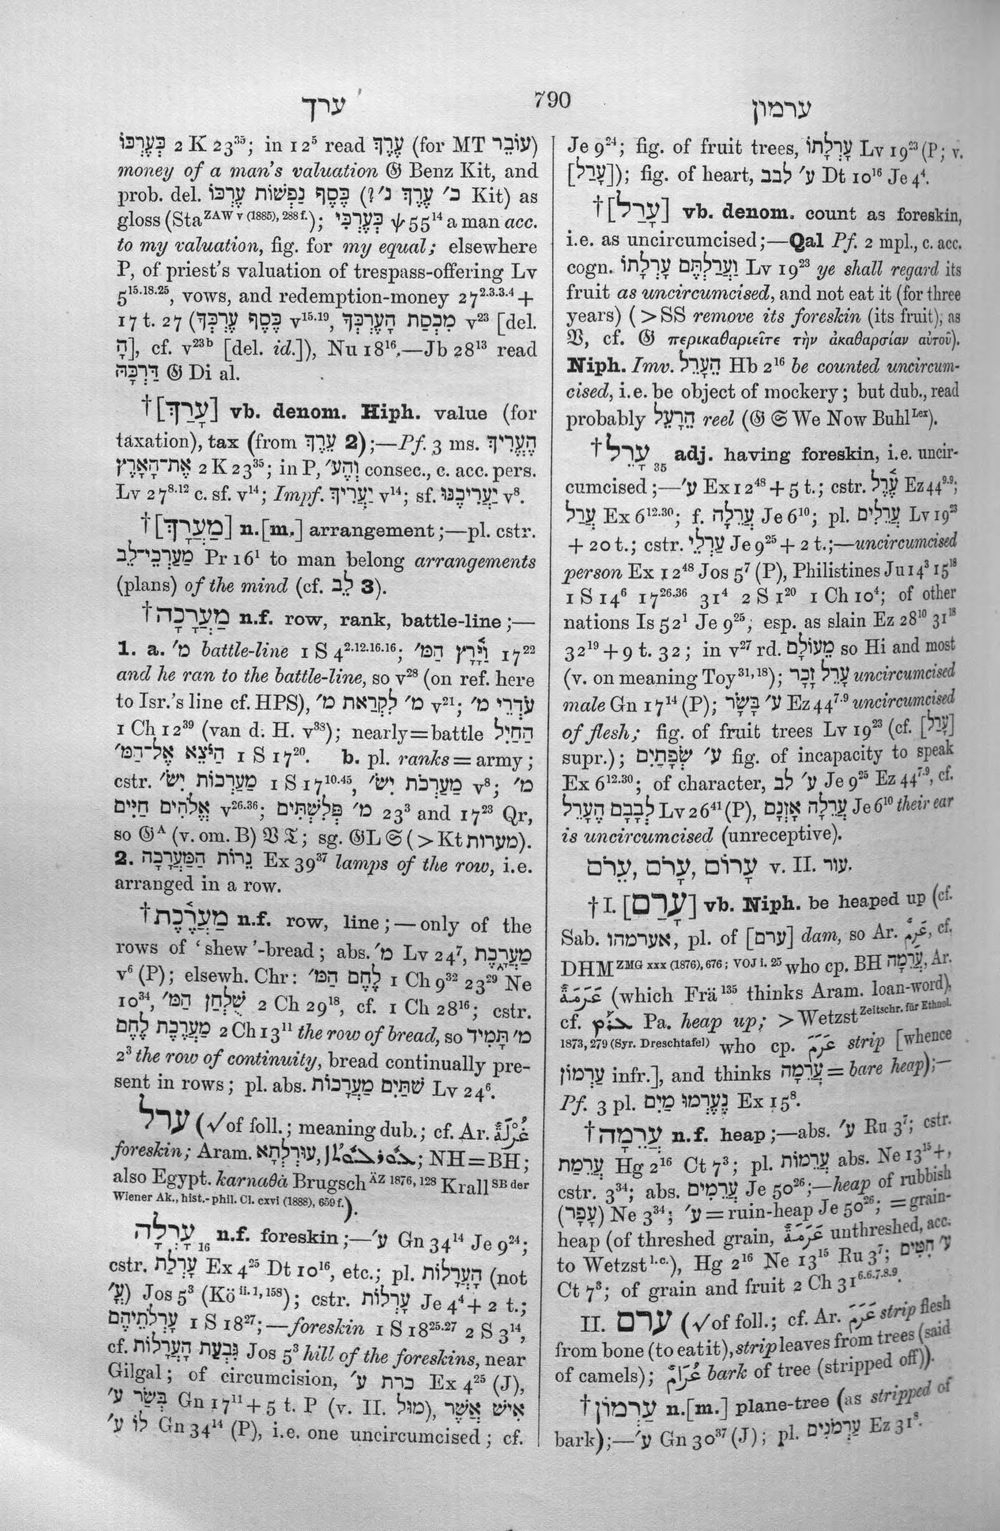 ערך
790
ערמון
כְּעֶרְכּוֹ 2 K 23³⁵; in 12⁵ read עֵרֶךְ (for MT עוֹבֵר)
money of a man's valuation 𝔊 Benz Kit, and
prob. del. כֶּסֶף נַפְשׁוֹת עֶרְכּוֹ (כ׳ עֵרֶךְ נ׳? Kit) as
gloss (Sta ZAW v (1885), 288 f.); כְּעֶרְכִּי ψ 55¹⁴ a man acc.
to my valuation, fig. for my equal; elsewhere
P, of priest's valuation of trespass-offering Lv
5¹⁵·¹⁸·²⁵, vows, and redemption-money 27²·³·³·⁴ +
17 t. 27 (כֶּסֶף עֶרְכְּךָ v¹⁵·¹⁹, מִכְסַת הָעֶרְכְּךָ v²³ [del.
הָ], cf. v²³ᵇ [del. id.]), Nu 18¹⁶.—Jb 28¹³ read
דַּרְכָּהּ 𝔊 Di al.
†[עָרַךְ] vb. denom. Hiph. value (for
taxation), tax (from עֵרֶךְ 2);—Pf. 3 ms. הֶעֱרִיךְ
אֶת־הָאָרֶץ 2 K 23³⁵; in P, וְהֶע׳ consec., c. acc. pers.
Lv 27⁸·¹² c. sf. v¹⁴; Impf. יַעֲרִיךְ v¹⁴; sf. יַעֲרִיכֶנּוּ v⁸.
†[מַעֲרָךְ] n.[m.] arrangement;—pl. cstr.
מַעַרְכֵי־לֵב Pr 16¹ to man belong arrangements
(plans) of the mind (cf. לֵב 3).
†מַעֲרָכָה n.f. row, rank, battle-line;—
1. a. מ׳ battle-line 1 S 4²·¹²·¹⁶·¹⁶; וַיָּרָץ הַמּ׳ 17²²
and he ran to the battle-line, so v²⁸ (on ref. here
to Isr.'s line cf. HPS), מ׳ לִקְרַאת מ׳ v²¹; עֹדְרֵי מ׳
1 Ch 12³⁹ (van d. H. v³⁸); nearly=battle הַחַיִל
הַיֹּצֵא אֶל־הַמּ׳ 1 S 17²⁰. b. pl. ranks=army;
cstr. מַעַרְכוֹת יִשׂ׳ 1 S 17¹⁰·⁴⁵, מַעַרְכֹת יִשׂ׳ v⁸; מ׳
אֱלֹהִים חַיִּים v²⁶·³⁶; מ׳ פְּלִשְׁתִּים 23³ and 17²³ Qr,
so 𝔊ᴬ (v. om. B) 𝔙 𝔗; sg. 𝔊L 𝔖 (>Kt מערות).
2. נֵרוֹת הַמַּעֲרָכָה Ex 39³⁷ lamps of the row, i.e.
arranged in a row.
†מַעֲרֶכֶת n.f. row, line;—only of the
rows of 'shew'-bread; abs. מ׳ Lv 24⁷, מַעֲרָכֶת
v⁶ (P); elsewh. Chr: לֶחֶם הַמּ׳ 1 Ch 9³² 23²⁹ Ne
10³⁴, שֻׁלְחַן הַמּ׳ 2 Ch 29¹⁸, cf. 1 Ch 28¹⁶; cstr.
מַעֲרֶכֶת לֶחֶם 2 Ch 13¹¹ the row of bread, so מ׳ תָּמִיד
2³ the row of continuity, bread continually pre-
sent in rows; pl. abs. שְׁתַּיִם מַעֲרָכוֹת Lv 24⁶.
ערל (√ of foll.; meaning dub.; cf. Ar. غُرْلَة
foreskin; Aram. עוּרְלְתָא, ܥܘܪܠܘܬܐ; NH=BH;
also Egypt. karnaθà Brugsch ÄZ 1876, 128 Krall SB der
Wiener Ak., hist.-phil. Cl. cxvi (1888), 659 f.).
עָרְלָה₁₆ n.f. foreskin;—ע׳ Gn 34¹⁴ Je 9²⁴;
cstr. עָרְלַת Ex 4²⁵ Dt 10¹⁶, etc.; pl. הָעֲרָלוֹת (not
עָ׳) Jos 5³ (Kö ii. 1, 158); cstr. עָרְלוֹת Je 4⁴+2 t.;
עָרְלֹתֵיהֶם 1 S 18²⁷;—foreskin 1 S 18²⁵·²⁷ 2 S 3¹⁴,
cf. גִּבְעַת הָעֲרָלוֹת Jos 5³ hill of the foreskins, near
Gilgal; of circumcision, כרת ע׳ Ex 4²⁵ (J),
בְּשַׂר ע׳ Gn 17¹¹+5 t. P (v. II. מול), אִישׁ אֲשֶׁר
לוֹ ע׳ Gn 34¹⁴ (P), i.e. one uncircumcised; cf.
Je 9²⁴; fig. of fruit trees, עָרְלָתוֹ Lv 19²³ (P; v.
[עָרֵל]); fig. of heart, ע׳ לבב Dt 10¹⁶ Je 4⁴.
†[עָרֵל] vb. denom. count as foreskin,
i.e. as uncircumcised;—Qal Pf. 2 mpl., c. acc.
cogn. וַעֲרַלְתֶּם עָרְלָתוֹ Lv 19²³ ye shall regard its
fruit as uncircumcised, and not eat it (for three
years) (>SS remove its foreskin (its fruit), as
𝔙, cf. 𝔊 περικαθαριεῖτε τὴν ἀκαθαρσίαν αὐτοῦ).
Niph. Imv. הֵעָרֵל Hb 2¹⁶ be counted uncircum-
cised, i.e. be object of mockery; but dub., read
probably הֵרָעֵל reel (𝔊 𝔖 We Now Buhl Lex).
†עָרֵל₃₅ adj. having foreskin, i.e. uncir-
cumcised;—ע׳ Ex 12⁴⁸+5 t.; cstr. עֶרֶל Ez 44⁹·⁹;
עֲרַל Ex 6¹²·³⁰; f. עֲרֵלָה Je 6¹⁰; pl. עֲרֵלִים Lv 19²³
+20 t.; cstr. עַרְלֵי Je 9²⁵+2 t.;—uncircumcised
person Ex 12⁴⁸ Jos 5⁷ (P), Philistines Ju 14³ 15¹⁸
1 S 14⁶ 17²⁶·³⁶ 31⁴ 2 S 1²⁰ 1 Ch 10⁴; of other
nations Is 52¹ Je 9²⁵, esp. as slain Ez 28¹⁰ 31¹⁸
32¹⁹+9 t. 32; in v²⁷ rd. מֵעוֹלָם so Hi and most
(v. on meaning Toy³¹,¹⁸); עָרֵל זָכָר uncircumcised
male Gn 17¹⁴ (P); ע׳ בָּשָׂר Ez 44⁷·⁹ uncircumcised
of flesh; fig. of fruit trees Lv 19²³ (cf. [עָרֵל]
supr.); ע׳ שְׂפָתַיִם fig. of incapacity to speak
Ex 6¹²·³⁰; of character, ע׳ לֵב Je 9²⁵ Ez 44⁷·⁹, cf.
לְבָבָם הֶעָרֵל Lv 26⁴¹ (P), עֲרֵלָה אָזְנָם Je 6¹⁰ their ear
is uncircumcised (unreceptive).
עָרוֹם, עָרֹם, עֵרֹם v. II. עור.
†I. [עָרַם] vb. Niph. be heaped up (cf.
Sab. אערמהו, pl. of [ערם] dam, so Ar. عَرِم, cf.
DHM ZMG xxx (1876), 676; VOJ i. 25 who cp. BH עֲרֵמָה, Ar.
عَرَمَة (which Frä¹³⁵ thinks Aram. loan-word),
cf. ܥܪܡ Pa. heap up; >Wetzst Zeitschr. für Ethnol.
1873, 279 (Syr. Dreschtafel) who cp. عَرَمَ strip [whence
עֶרְמוֹן infr.], and thinks עֲרֵמָה = bare heap);—
Pf. 3 pl. נֶעֶרְמוּ מַיִם Ex 15⁸.
†עֲרֵמָה n.f. heap;—abs. ע׳ Ru 3⁷; cstr.
עֲרֵמַת Hg 2¹⁶ Ct 7³; pl. עֲרֵמוֹת abs. Ne 13¹⁵+,
cstr. 3³⁴; abs. עֲרֵמִים Je 50²⁶;—heap of rubbish
(עָפָר) Ne 3³⁴; ע׳=ruin-heap Je 50²⁶; =grain-
heap (of threshed grain, عَرَمَة unthreshed, acc.
to Wetzst l.c.), Hg 2¹⁶ Ne 13¹⁵ Ru 3⁷; ע׳ חִטִּים
Ct 7³; of grain and fruit 2 Ch 31⁶·⁶·⁷·⁸·⁹.
II. ערם (√ of foll.; cf. Ar. عَرَمَ strip flesh
from bone (to eat it), strip leaves from trees (said
of camels); عُرَام bark of tree (stripped off)).
†עֶרְמוֹן n.[m.] plane-tree (as stripped of
bark);—ע׳ Gn 30³⁷ (J); pl. עַרְמֹנִים Ez 31⁸.